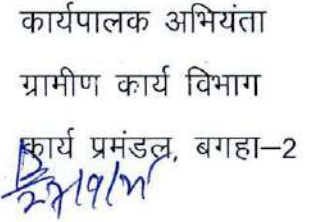 कार्यपालक अभियंता
ग्रामीण कार्य विभाग
कार्य प्रमंडल, बगहा–2